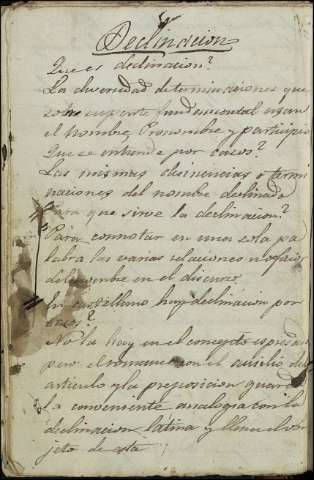 Declinacion
Que es declinacion?
La diversidad de terminaciones que
sobre una parte fundamental usan
el nombre, Pronombre y participio
Que se entiende por casos?
Las mismas disinencias o termi
naciones del nombre declinado
Para que sirve la declinacion?
Para connotar en una sola pa
labra las varias relaciones u oficios
del nombre en el discurso
En castellano hay declinacion por
casos?
No la hay en el concepto espresado
pero el romance con el ausilio del
articulo y la preposicion guarda
la conveniente analogia con la
declinacion latina y llena el ob
jeto de esta